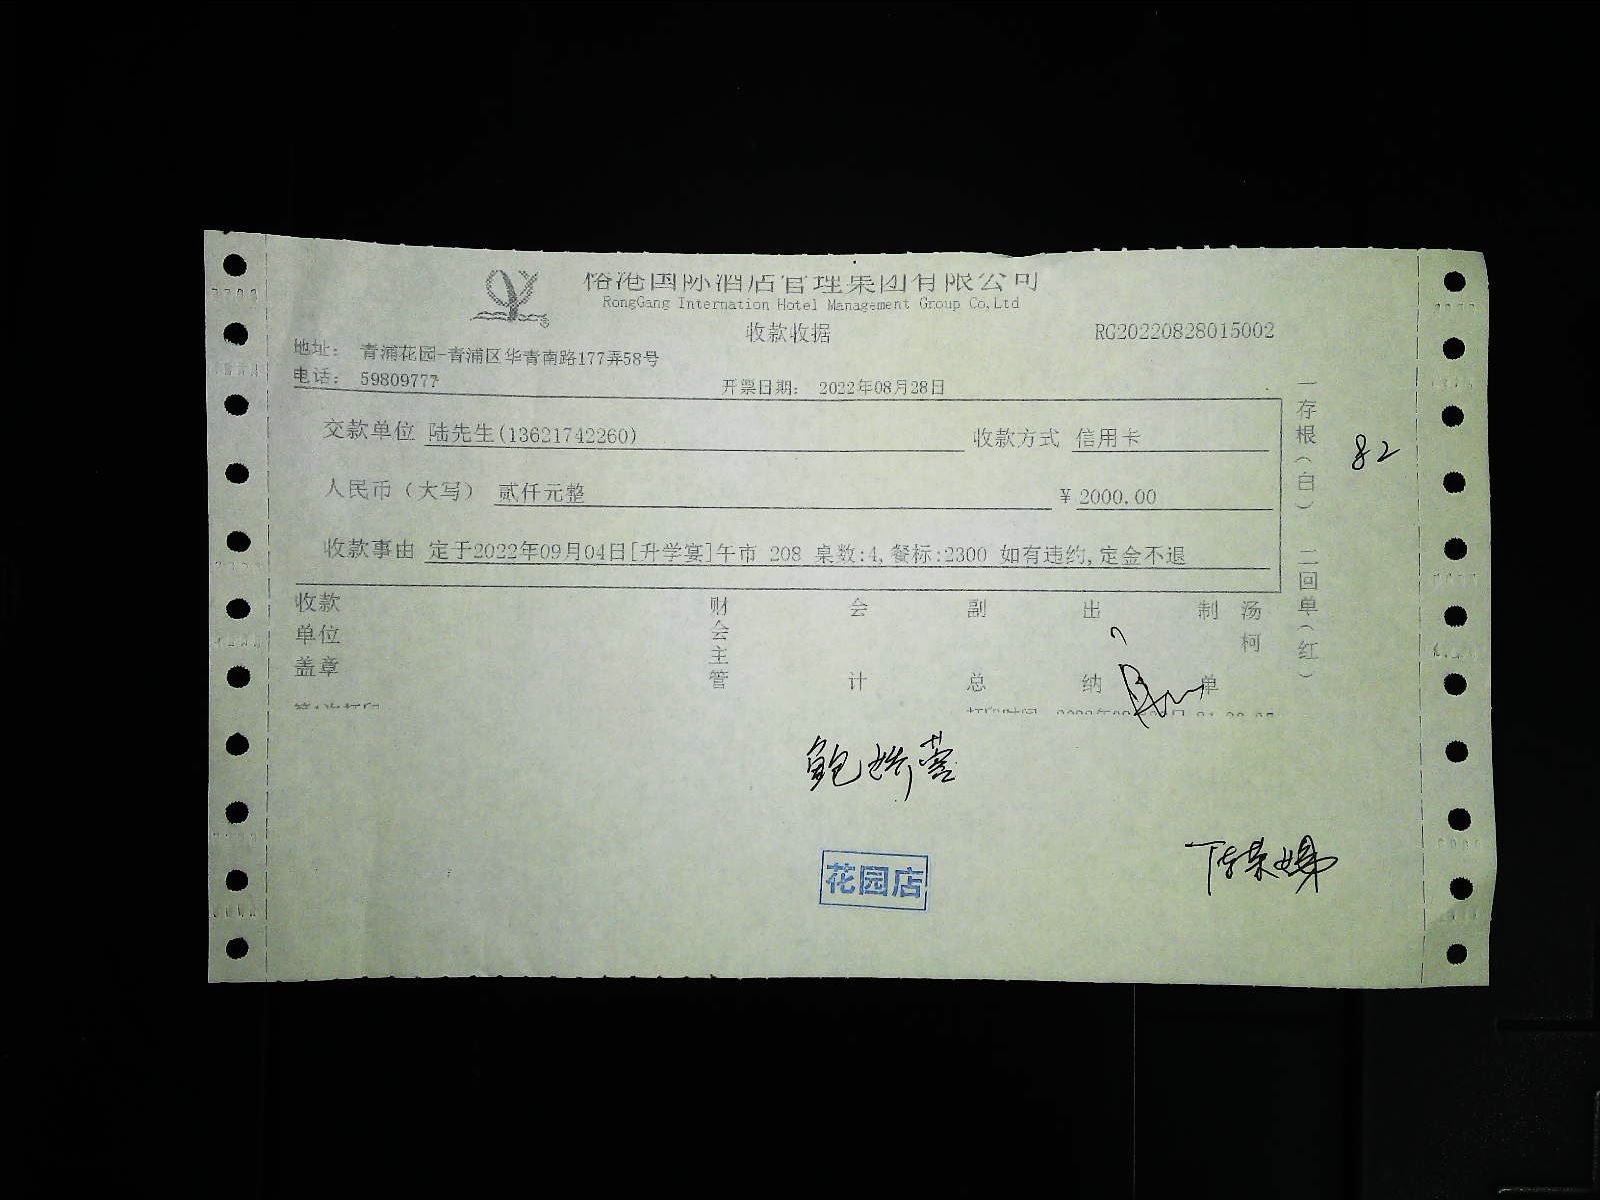 榕港国际酒店管理集团有限公司
RongGang Internation Hotel Management Group Co,Ltd
收款收据
RG20220828015002
地址： 青浦花园-青浦区华青南路177弄58号
电话： 59809777
开票日期： 2022年08月28日
交款单位 陆先生(13621742260) 收款方式 信用卡
人民币（大写） 贰仟元整 ¥ 2000.00
收款事由 定于2022年09月04日[升学宴]午市 208 桌数:4,餐标:2300 如有违约,定金不退
收款单位盖章 财会主管 会计 副总 出纳 制单 汤柯
一存根（白） 二回单（红）
82
花园店